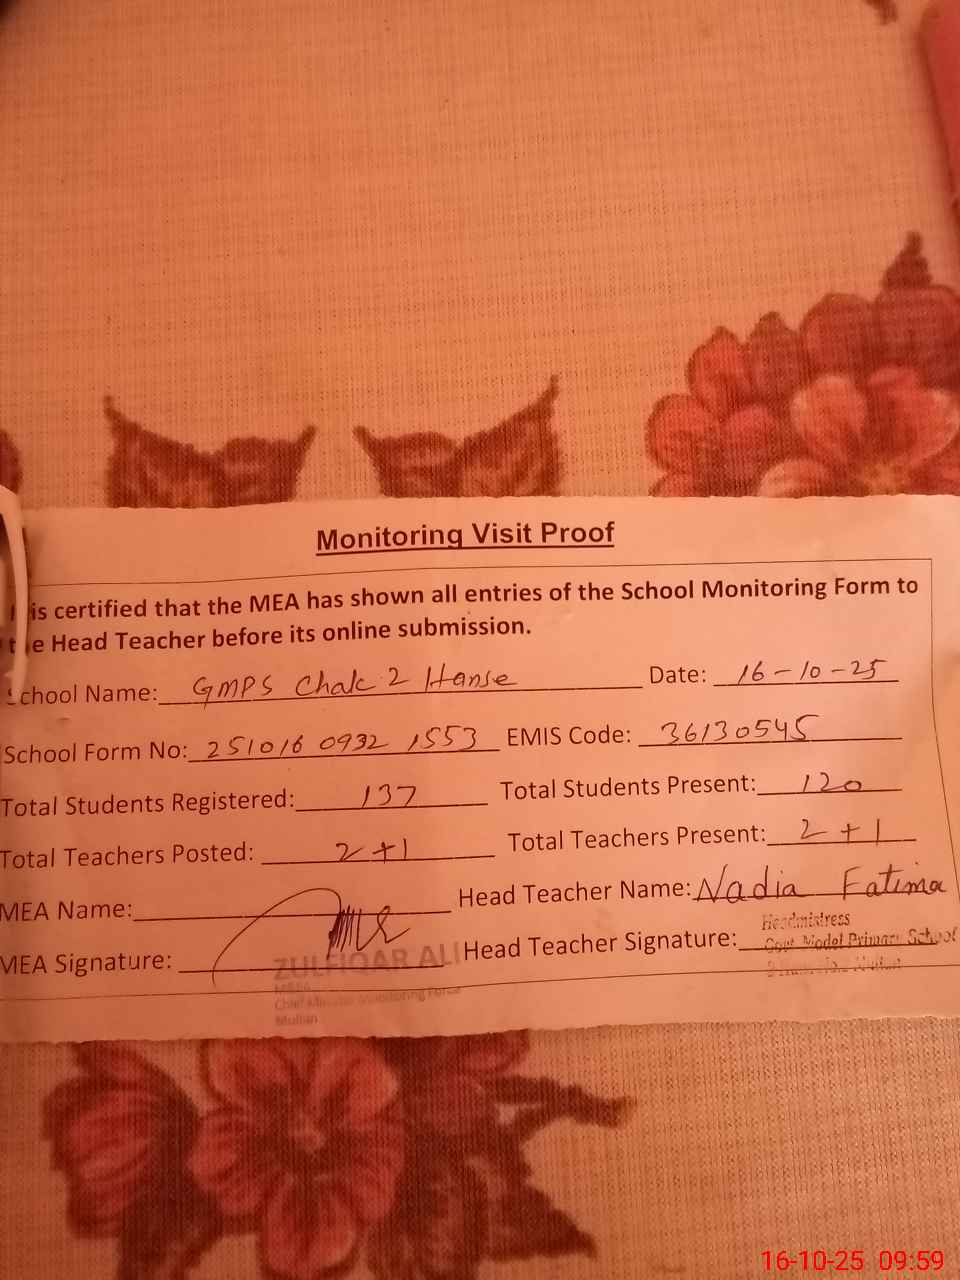 Monitoring Visit Proof
is certified that the MEA has shown all entries of the School Monitoring Form to
the Head Teacher before its online submission.
School Name: GMPS Chak 2 Hanse Date: 16-10-25
School Form No: 251016 0932 1553 EMIS Code: 36130545
Total Students Registered: 137 Total Students Present: 120
Total Teachers Posted: 2+1 Total Teachers Present: 2+1
MEA Name: Head Teacher Name: Nadia Fatima
MEA Signature: Head Teacher Signature:
Headmistress
Govt. Model Primary School
Multan
ZULFIQAR ALI
MEA
Chief Minister Monitoring Force
Multan
16-10-25 09:59